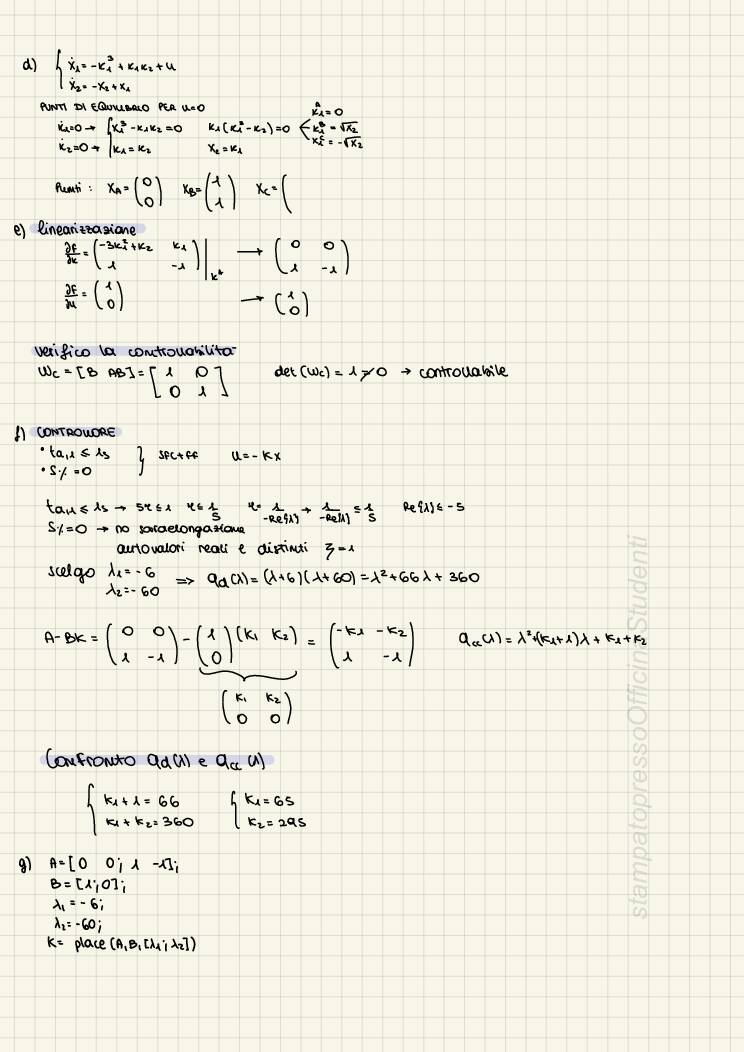 d) { ẋ₁ = -x₁³ + x₁x₂ + u
ẋ₂ = -x₂ + x₁
PUNTI DI EQUILIBRIO PER u=0
ẋ₁=0 → { x₁³ - x₁x₂ = 0 x₁(x₁² - x₂) = 0 x₁ᴬ = 0
x₁ᴮ = √x₂
ẋ₂=0 → x₁ = x₂ x₂ = x₁ x₁ᶜ = -√x₂
Punti: xA = (0 0) xB = (1 1) xC = (
e) linearizzazione
∂f/∂x = (-3x₁²+x₂ x₁ 1 -1)|x* → (0 0 1 -1)
∂f/∂u = (1 0) → (1 0)
verifico la controllabilità
Wc = [B AB] = [1 0 0 1] det(Wc) = 1 ≠ 0 → controllabile
f) CONTROLLORE
• ta,1 ≤ 1s } SFC+FF u = -Kx
• S% = 0
ta,1 ≤ 1s → 5τ ≤ 1 τ ≤ 1/5 τ = 1/-Re{λ} → 1/-Re{λ} ≤ 1/5 Re{λ} ≤ -5
S% = 0 → no sovraelongazione
autovalori reali e distinti ξ=1
scelgo λ₁ = -6 ⇒ qd(λ) = (λ+6)(λ+60) = λ²+66λ+360
λ₂ = -60
A-BK = (0 0 1 -1) - (1 0)(K₁ K₂) = (-K₁ -K₂ 1 -1) qcc(λ) = λ²+(K₁+1)λ + K₁+K₂
(K₁ K₂ 0 0)
Confronto qd(λ) e qcc(λ)
{ K₁+1 = 66 { K₁ = 65
K₁+K₂ = 360 K₂ = 295
g) A = [0 0; 1 -1];
B = [1; 0];
λ₁ = -6;
λ₂ = -60;
K = place(A,B,[λ₁; λ₂])
stampatopressoOfficinaStudenti